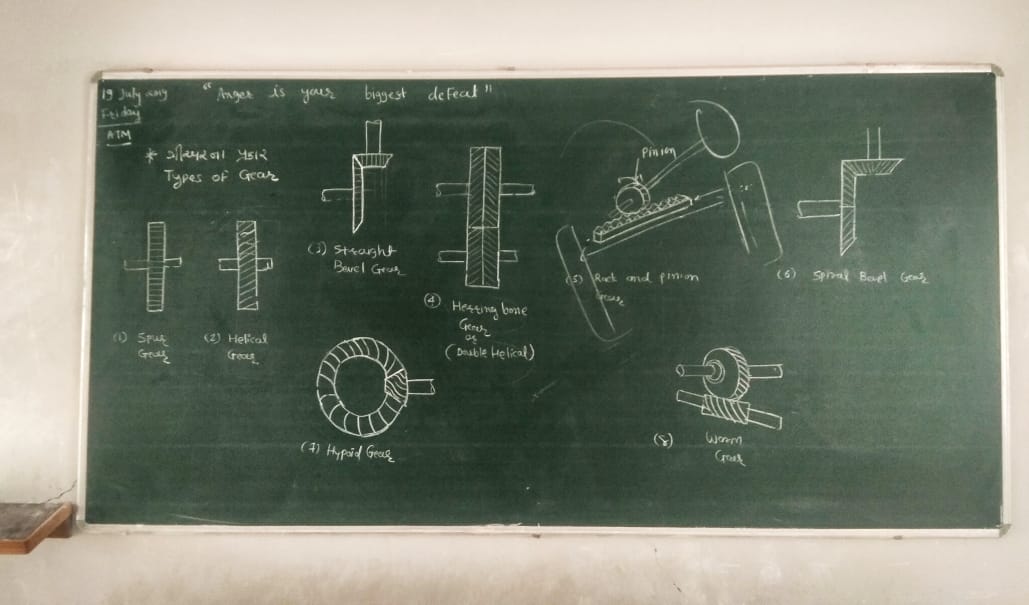 19 July 2019
Friday
ATM
"Anger is your biggest defeat"
*
Types of Gear
(1) Spur
Gear
(2) Helical
Gear
(3) Straight
Bevel Gear
(4) Herring bone
Gear
or
(Double Helical)
Pinion
(5) Rack and pinion
Gear
(6) Spiral Bevel Gear
(7) Hypoid Gear
(8) Worm
Gear